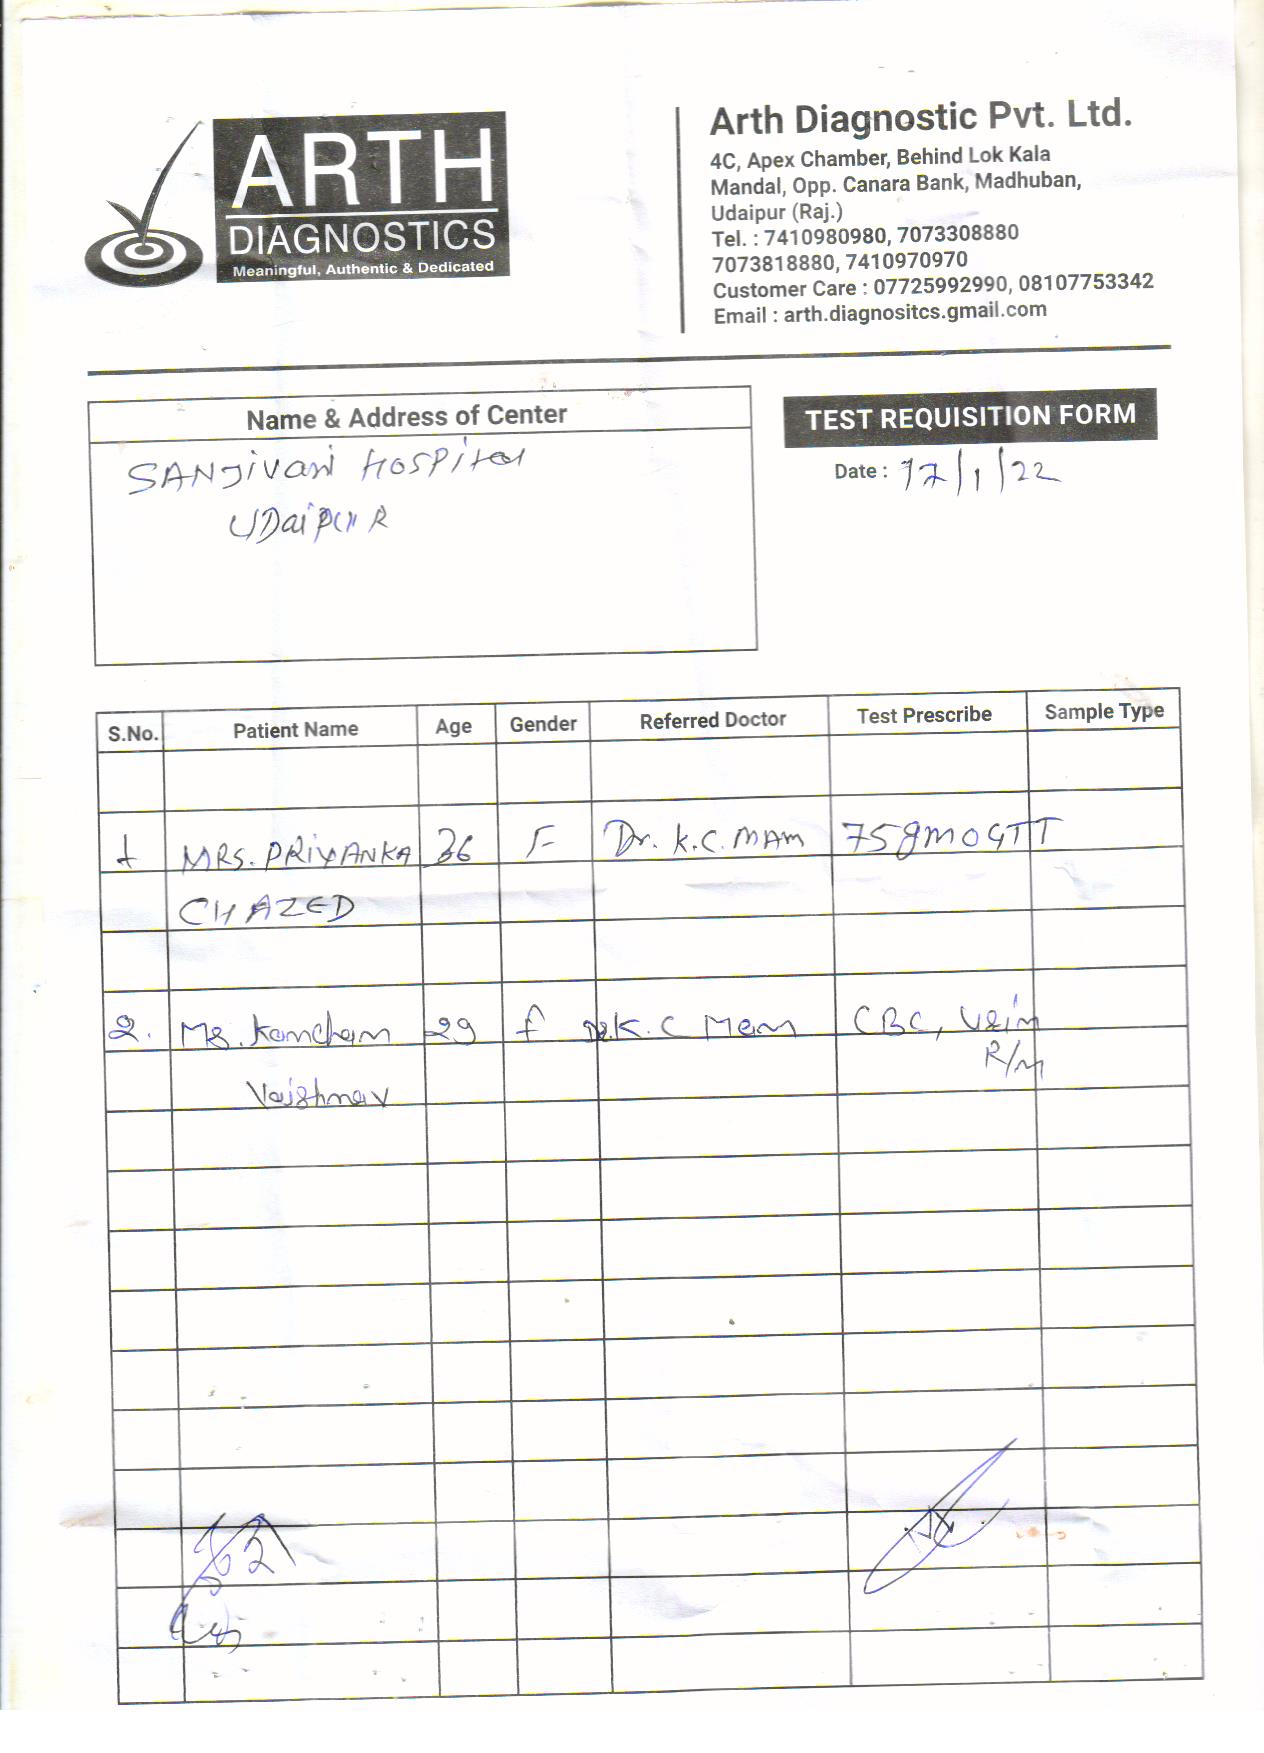 ARTH
DIAGNOSTICS
Meaningful, Authentic & Dedicated
Arth Diagnostic Pvt. Ltd.
4C, Apex Chamber, Behind Lok Kala
Mandal, Opp. Canara Bank, Madhuban,
Udaipur (Raj.)
Tel. : 7410980980, 7073308880
7073818880, 7410970970
Customer Care : 07725992990, 08107753342
Email : arth.diagnositcs.gmail.com
Name & Address of Center
SANJIVANI HOSPITAL
UDAIPUR
TEST REQUISITION FORM
Date : 12/1/22
S.No. Patient Name Age Gender Referred Doctor Test Prescribe Sample Type
1 MRS. PRIYANKA 36 F Dr. K.C. MAM 75gm OGTT
CHAZED
2. Ms. Kamcham 29 f Dr. K.C Mam CBC, Urin
R/M
Vaishnav